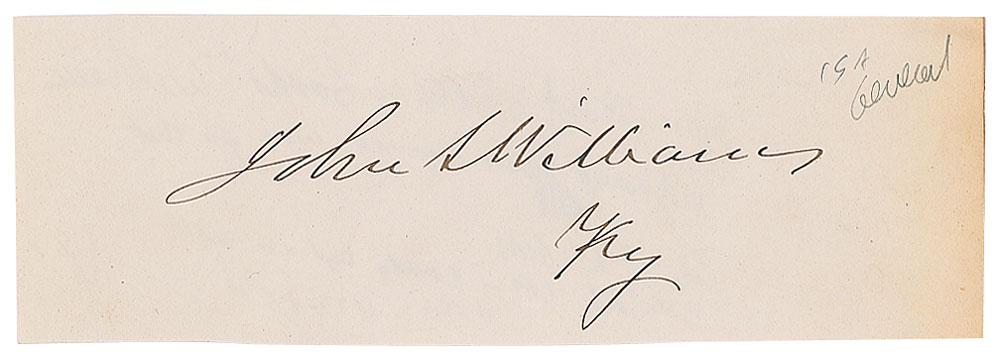 CSA
General
John S Williams
Ky